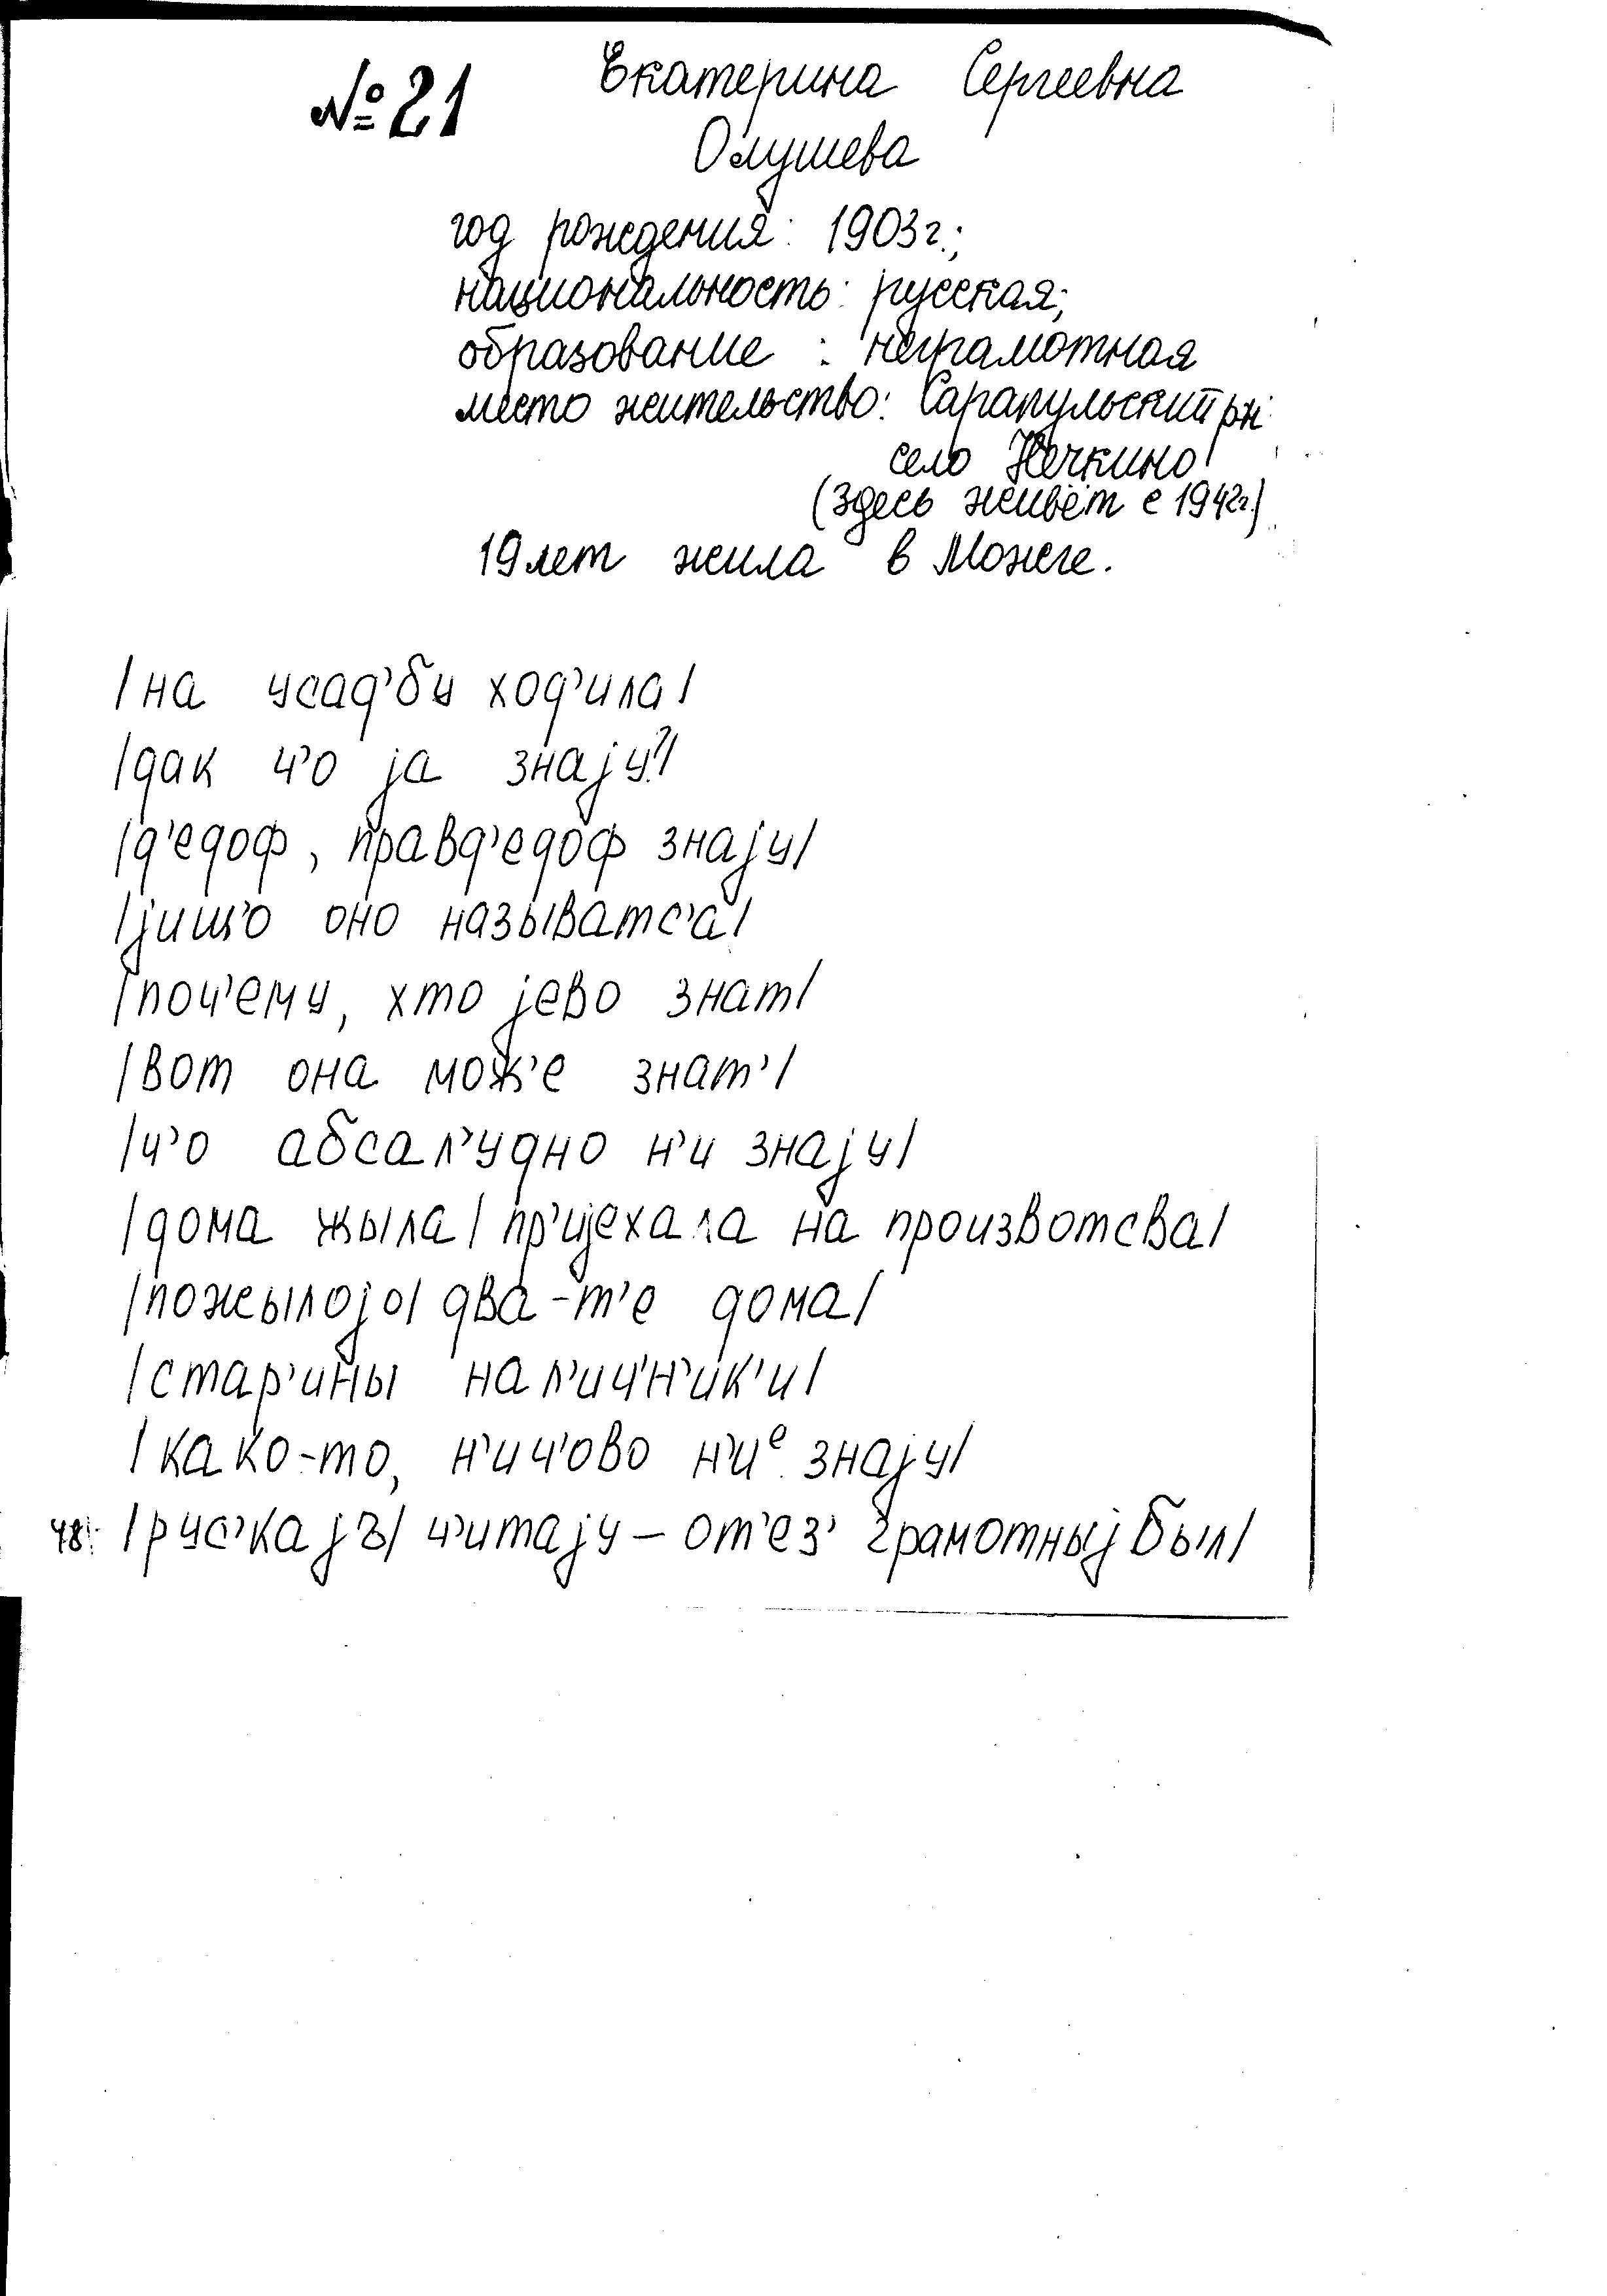 №21 Екатерина Сергеевна
Олушева
год рождения: 1903г.;
национальность: русская;
образование : неграмотная
место жительство: Сарапульский рн
село Нечкино
(здесь живёт с 1942г.)
19 лет жила в Можге.
/на усад’бу ход’ила/
/дак ч’о jа знаjу?/
/д’едоф, правд’едоф знаjу/
/jиш’о оно называтс’а/
/поч’ему, хто jево знат/
/вот она мож’е знат’/
/ч’о абсал’удно н’и знаjу/
/дома жыла/ пр’иjехала на произвотсва/
/пожылоjо/ два-т’е дома/
/стар’ины нал’ич’н’ик’и/
/како-то, н’ич’ово н’иᵉ знаjу/
48. /рус’каjъ/ ч’итаjу – от’ез’ грамотныj был/